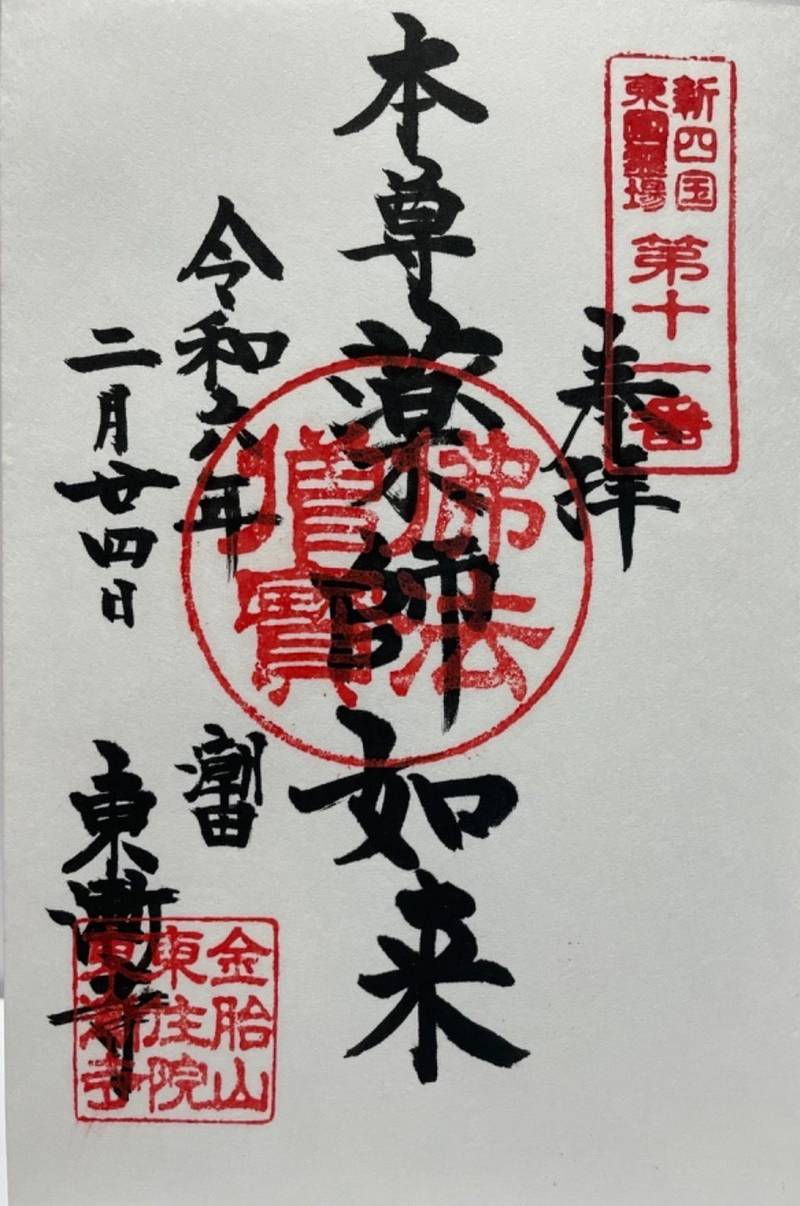 新四国
東国霊場
第十一番
奉拝
本尊薬師如来
佛法
僧寶
令和六年
二月廿四日
潮田
東漸寺
金胎山
東住院
東漸寺